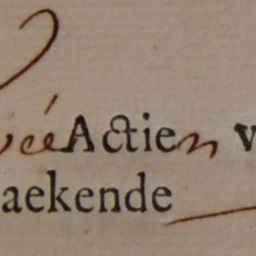 véé Actien v
aekende